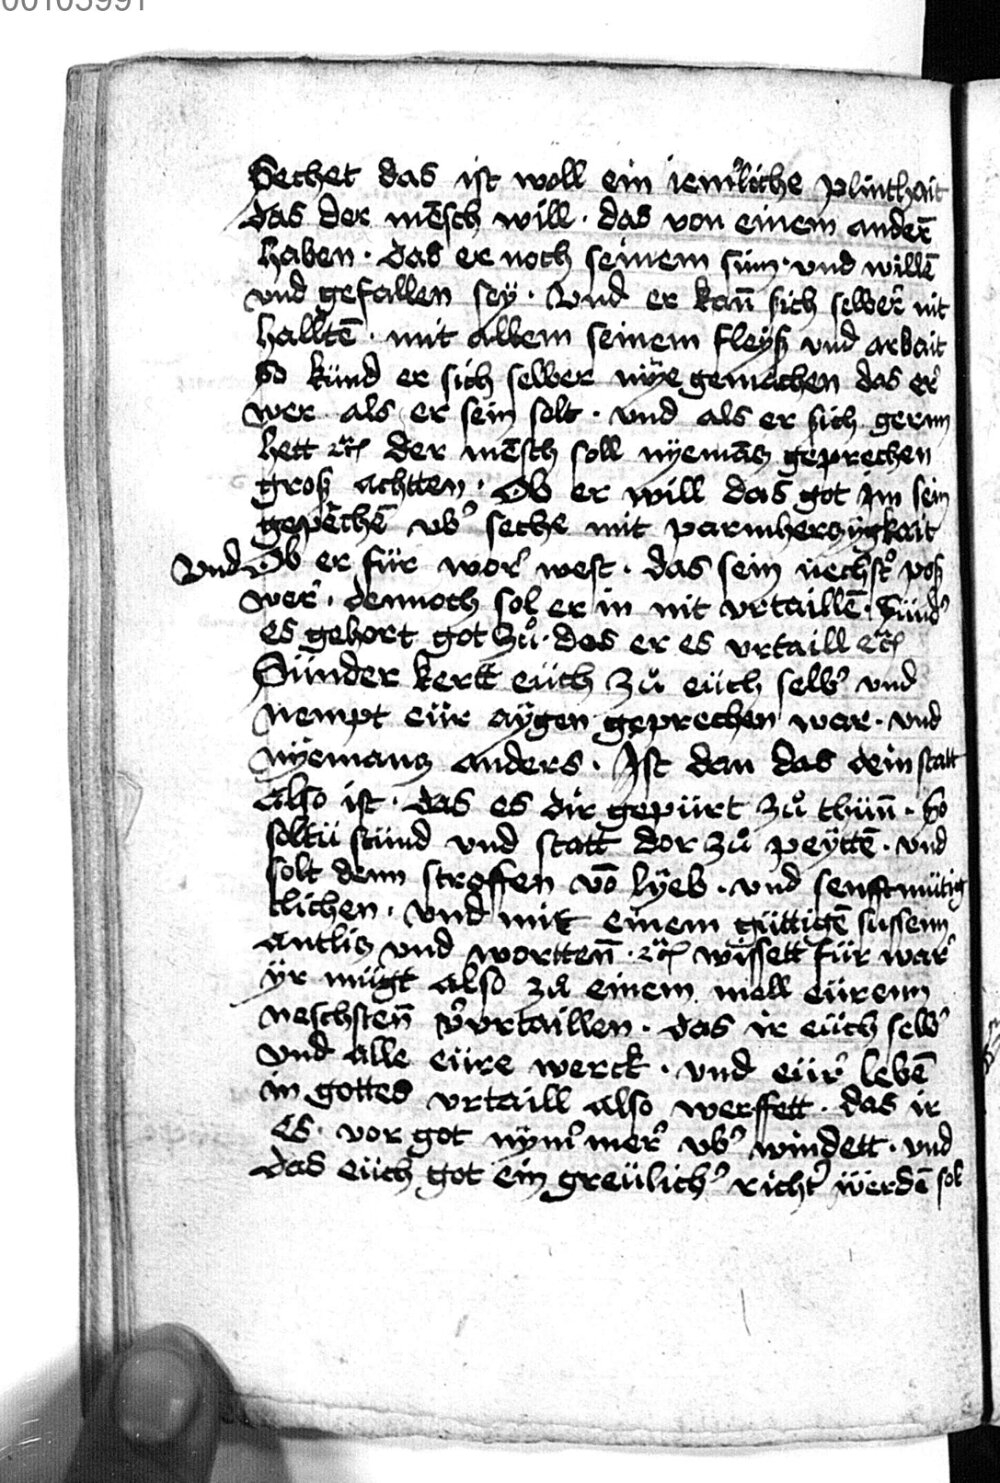 00103991
Sechet das ist woll ein iem̃liche plinthait
das der mēsch will · das von einem anderē
haben · das er noch seinem sinn · vnd willē
vnd gefallen seÿ · Vnd er kan̄ sich selber nit
halltē · mit allem seinem fleÿß vnd arbait
So künd er sich selber nÿe gemachen das er
wer als er sein solt · vnd als er sich gernn
hett ꝛc̃ der mēsch soll nÿemāß geprechen
groß achtten · Ob er will das got im sein
gepēchē vb̾ seche mit parmherczÿgkait
Vnd Ob er für wor west · das sein nechst̾ poß
wer · dennoch sol er in nit vrtaillē · Sünd̾
es gehort got zů · das er es vrtaill ꝛc̃
Sünder kertt eüch zů eüch selb̾ vnd
nempt eür aÿgen geprechen war · vnd
nÿemans anders · Ist dan das dein statt
also ist · das es dir gepürt zů thün̄ · So
soltü stünd vnd statt dor zů peÿttē · vnd
solt denn stroffen vō lÿeb · vnd senfftmütig
clichen · vnd mit einem güttigē süssenn
antlis vnd wortten̄ · ꝛc̃ wissett für war
ÿr mügt also zů einem moll eürenn
neschsten̄ v̾vrtaillen · das ir eüch selb̾
vnd alle eüre werck · vnd eür lebē
in gottes vrtaill also werffett · das ir
es · vor got nÿm̃ mer vb̾ windett · vnd
das eüch got ein greülich̾ richt̾ werdē sol